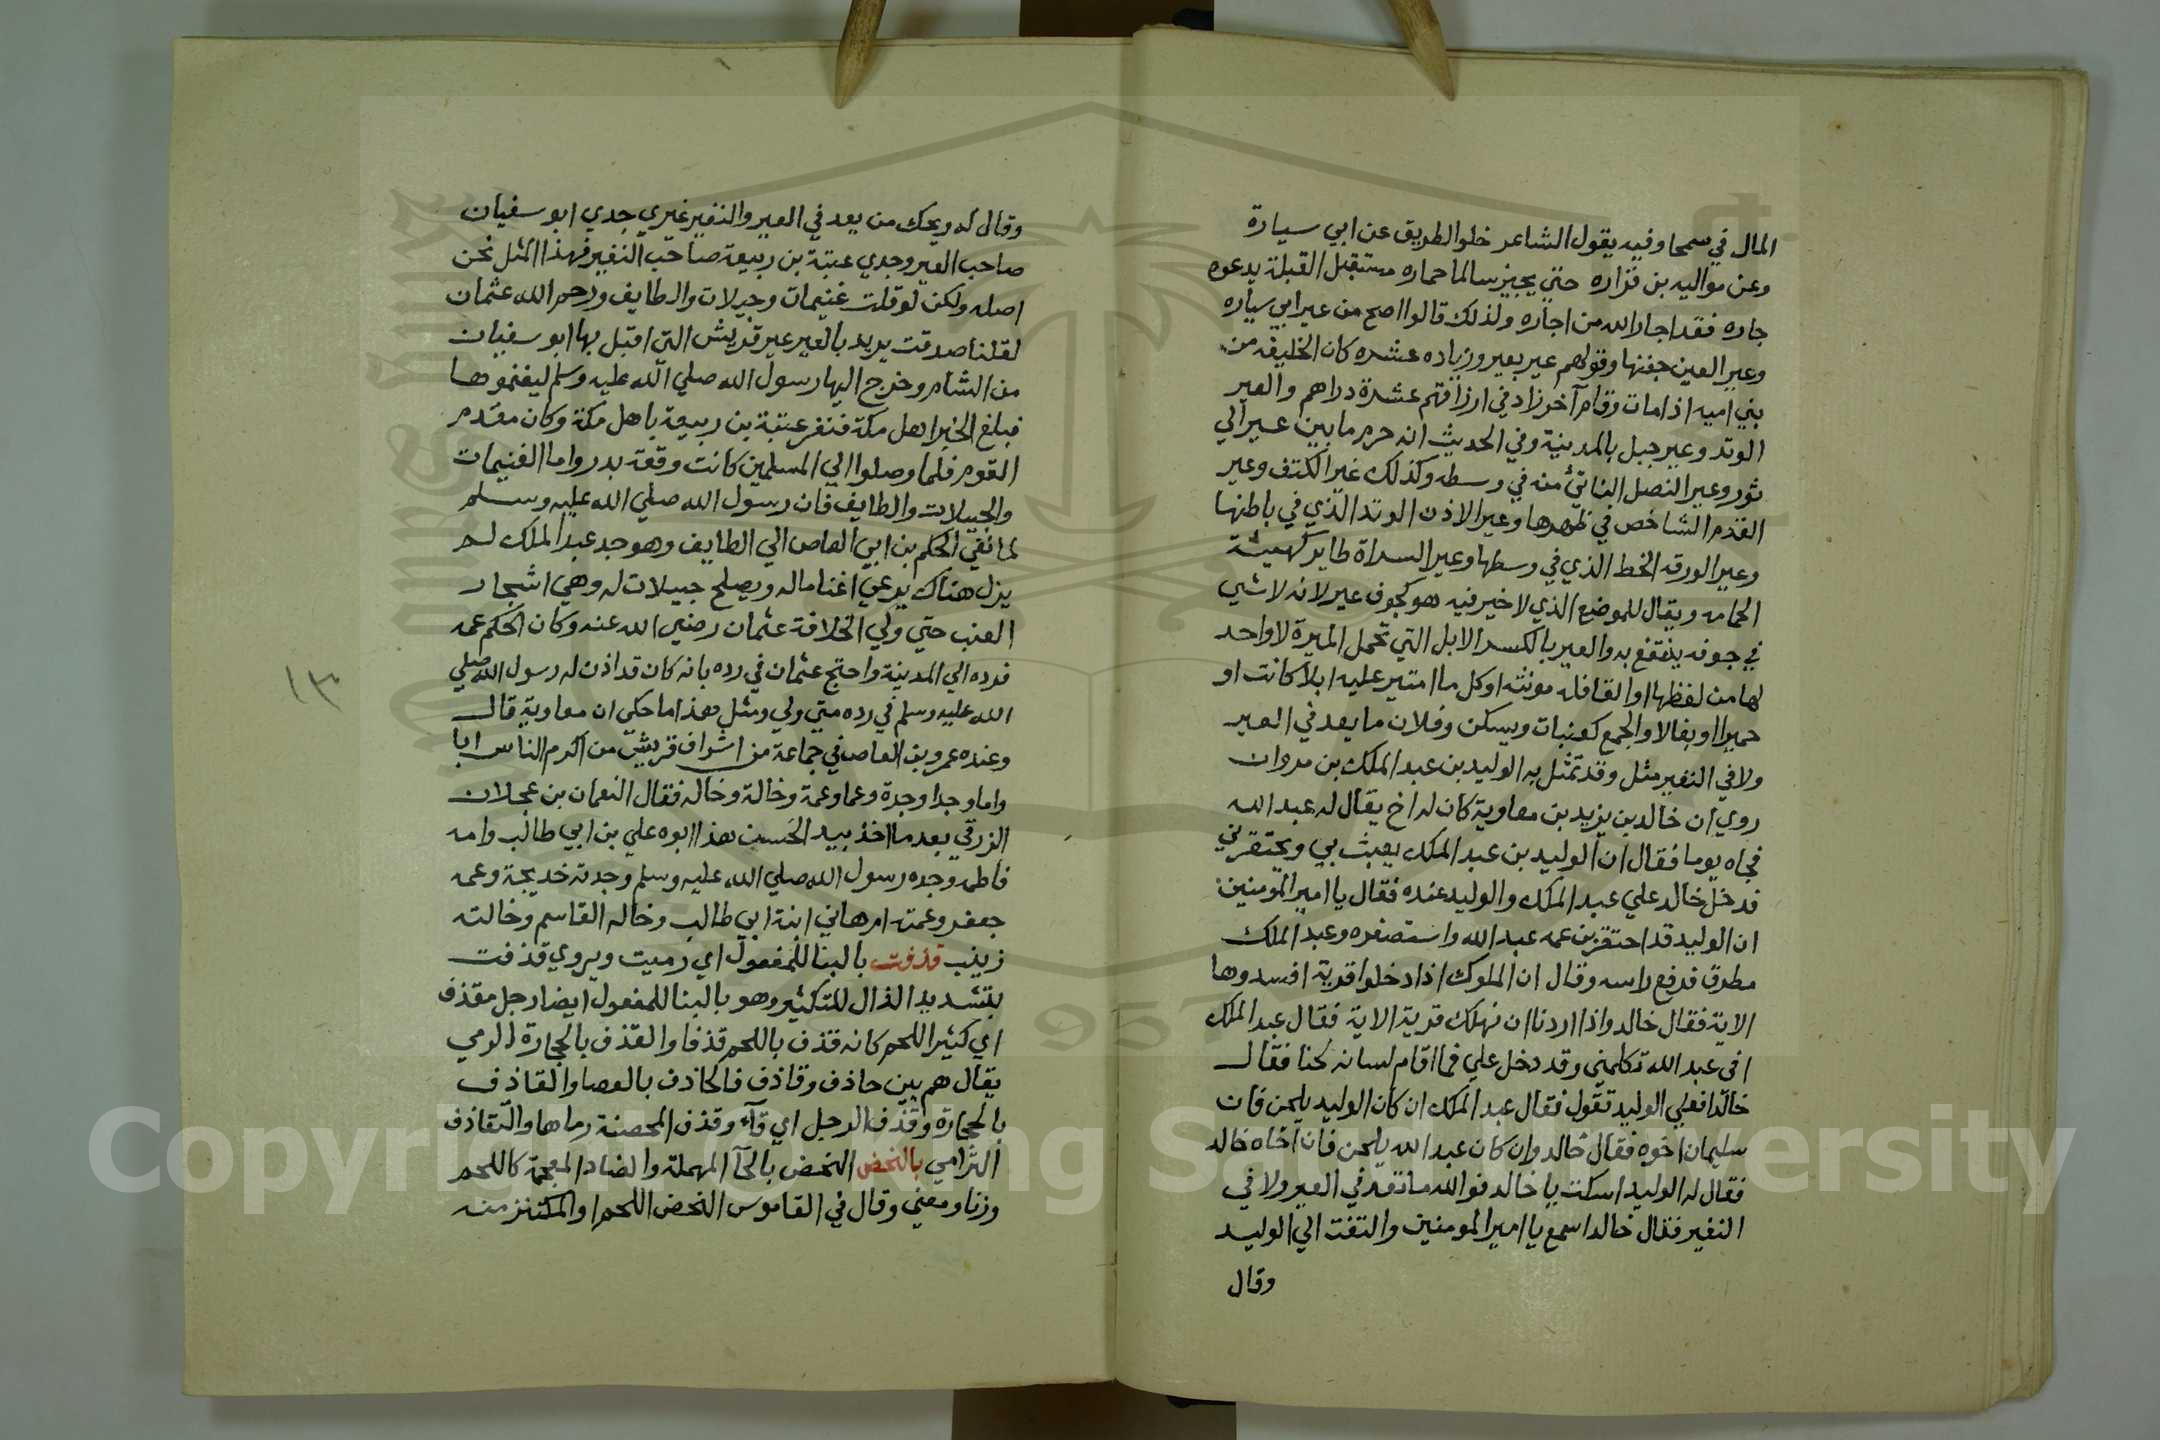 المال في سمحا وفيه يقول الشاعر خلوا الطريق عن ابي سيارة
وعن مواليه بن فزاره حتي يجيز سالما حماره مستقبل القبلة يدعوه
جاره فقد اجار الله من اجاره ولذلك قالوا اصح من عير ابي سياره
وعير العين جفنها وقولهم عير بعير وزياده عشره كان الخليفه من
بني اميه اذا مات وقام آخر زاد في ارزاقهم عشرة دراهم والعير
الوتد وعير جبل بالمدينة وفي الحديث انه حرم ما بين عير الي
ثور وعير النصل الناتئ منه في وسطه وكذلك عير الكتف وعير
القدم الشاخص في ظهرها وعير الاذن الوتد الذي في باطنها
وعير الورقه الخط الذي في وسطها وعير السراة طاير كهيئة
الحمامه ويقال للموضع الذي لا خير فيه هو كجوف عير لانه لا شي
في جوفه ينتفع به والعير بالكسر الابل التي تحمل الميرة لا واحد
لها من لفظها او القافله مونثه او كل ما امتير عليه ابلا كانت او
حميرا او بغالا والجمع كعنبات ويسكن وفلان ما يعد في العير
ولا في النفير مثل وقد تمثل به الوليد بن عبد الملك بن مروان
روي ان خالد بن يزيد بن معاوية كان له اخ يقال له عبد الله
فجاه يوما فقال ان الوليد بن عبد الملك يعبث بي ويحتقرني
فدخل خالد علي عبد الملك والوليد عنده فقال يا امير المومنين
ان الوليد قد احتقر بن عمه عبد الله واستصغره وعبد الملك
مطرق فرفع راسه وقال ان الملوك اذا دخلوا قرية افسدوها
الاية فقال خالد واذا اردنا ان نهلك قرية الاية فقال عبد الملك
افي عبد الله تكلمني وقد دخل علي فما اقام لسانه لحنا فقال
خالد افعلي الوليد تقول فقال عبد الملك ان كان الوليد يلحن فان
سليمان اخوه فقال خالد وان كان عبد الله يلحن فان اخاه خالد
فقال له الوليد اسكت يا خالد فوالله ما تعد في العير ولا في
النفير فقال خالد اسمع يا امير المومنين والتفت الي الوليد
وقال
وقال له ويحك من يعد في العير والنفير غيري جدي ابو سفيان
صاحب العير وجدي عتبة بن ربيعة صاحب النفير فهذا المثل نحن
اصله ولكن لو قلت غنيمات وجبيلات والطايف ورحم الله عثمان
لقلنا صدقت يريد بالعير عير قريش التي اقبل بها ابو سفيان
من الشام وخرج اليها رسول الله صلي الله عليه وسلم ليغنموها
فبلغ الخبر اهل مكة فنفر عتبة بن ربيعة باهل مكة وكان مقدم
القوم فلما وصلوا الي المسلمين كانت وقعة بدر واما الغنيمات
والجبيلات والطايف فان رسول الله صلي الله عليه وسلم
لما نفي الحكم بن ابي العاص الي الطايف وهو جد عبد الملك لم
يزل هناك يرعي اغناما له ويصلح جبيلات له وهي اشجار
العنب حتي ولي الخلافة عثمان رضي الله عنه وكان الحكم عمه
فرده الي المدينة واحتج عثمان في رده بانه كان قد اذن له رسول الله صلي
الله عليه وسلم في رده متي ولي ومثل هذا ما حكي ان معاوية قال
وعنده عمرو بن العاص في جماعة من اشراف قريش من اكرم الناس ابا
واما وجدا وجدة وعما وعمة وخالة وخاله فقال النعمان بن عجلان
الزرقي بعد ما اخذ بيد الحسن هذا ابوه علي بن ابي طالب وامه
فاطمه وجده رسول الله صلي الله عليه وسلم وجدته خديجة وعمه
جعفر وعمته ام هاني ابنة ابي طالب وخاله القاسم وخالته
زينب قذفت بالبنا للمفعول اي رميت ويروي قذفت
بتشديد الذال للتكثير وهو بالبنا للمفعول ايضا رجل مقذف
اي كثير اللحم كانه قذف باللحم قذفا والقذف بالحجارة الرمي
يقال هم بين حاذف وقاذف فالحاذف بالعصا والقاذف
بالحجارة وقذف الرجل اي قآء وقذف المحصنة رماها والتقاذف
الترامي بالنحض النحض بالحآ المهملة والضاد المعجمة كاللحم
وزنا ومعني وقال في القاموس النحض اللحم او المكتنز منه
١٣
Copyright © King Saud University
1957